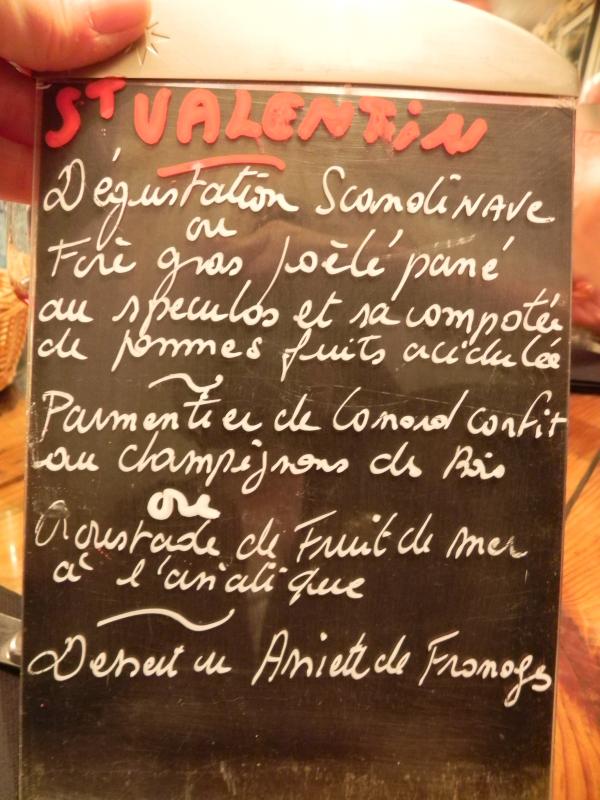 ST VALENTiN
Dégustation ScandiNAVe
ou
Foie gras poêlé pané
au speculos et sa compotée
de pommes fruits acidulée
Parmentier de Canard confit
au champignons des Bois
ou
Croustade de Fruit de mer
à l'asiatique
Dessert ou Assiette de Fromages